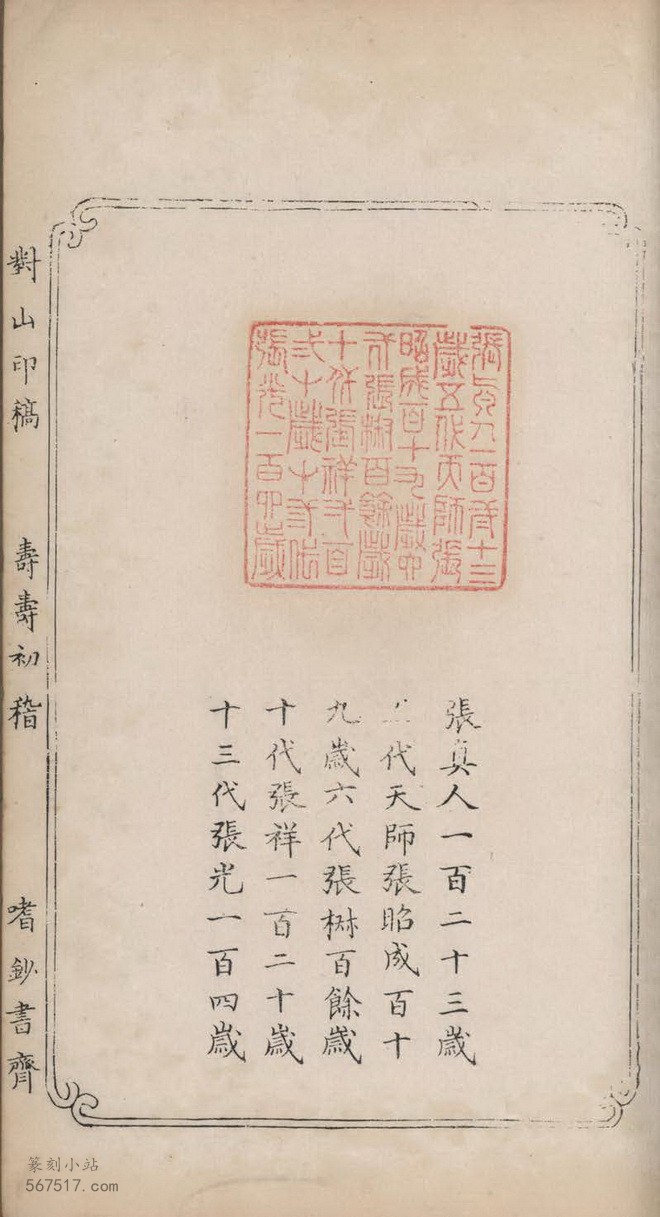 張真人一百弍十三
歲五代天師張
昭成百十九歲六
代張椒百餘歲
十代張祥弌百
弍十歲十弎代
張光一百四歲
張真人一百二十三歲
五代天師張昭成百十
九歲六代張椒百餘歲
十代張祥一百二十歲
十三代張光一百四歲
對山印稿 壽壽初稽 嗜鈔書齊
篆刻小站
567517.com